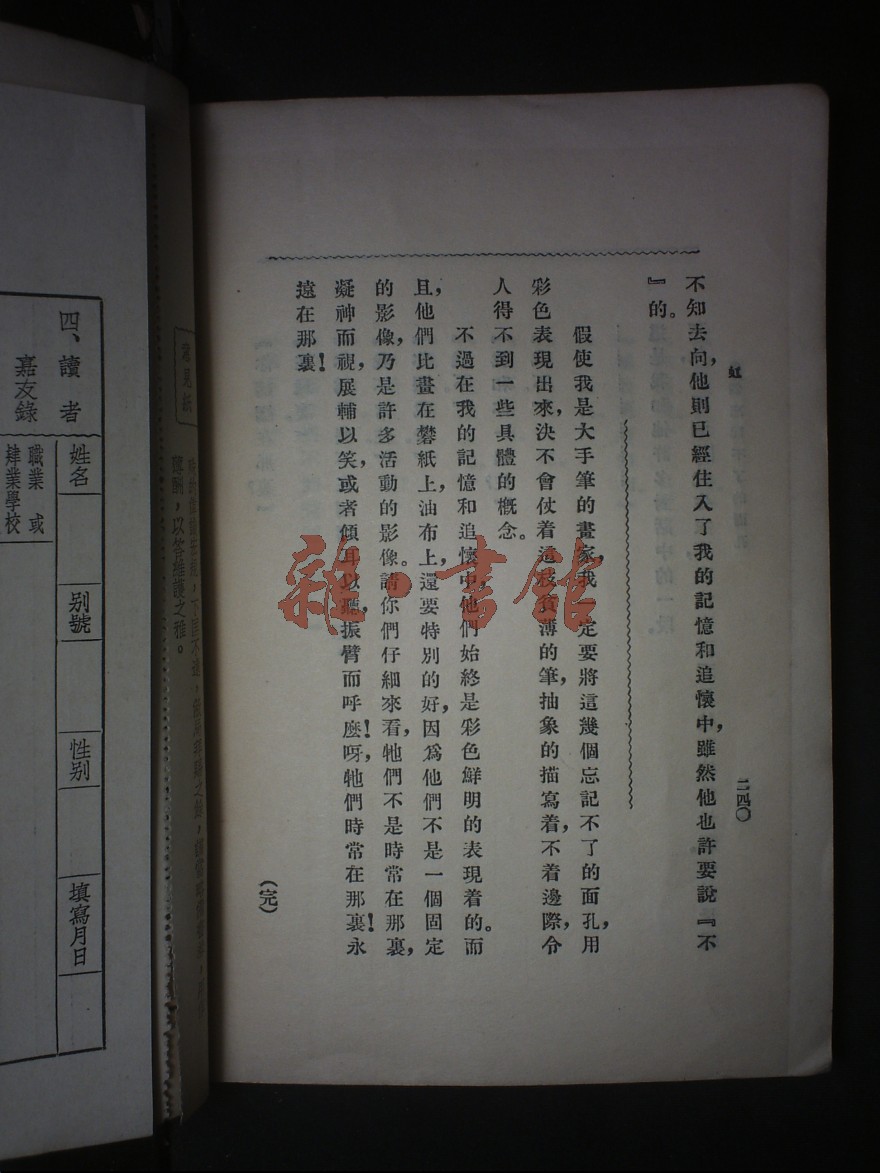 紅
二四〇
不知去向，他則已經住入了我的記憶和追懷中，雖然他也許要說『不
』的。
假使我是大手筆的畫家，我一定要將這幾個忘記不了的面孔，用
彩色表現出來，決不會仗着這枝貧薄的筆，抽象的描寫着，不着邊際，令
人得不到一些具體的概念。
不過在我的記憶和追懷中，他們始終是彩色鮮明的表現着的。而
且，他們比畫在礬紙上，油布上，還要特別的好，因爲他們不是一個固定
的影像，乃是許多活動的影像。請你們仔細來看，牠們不是時常在那裏，
凝神而視，展輔以笑，或者傾耳以聽，振臂而呼麼！呀，牠們時常在那裏！永
遠在那裏！
（完）
雜·書館
意見紙
酬，以答維護之雅。
四、讀者
嘉友錄
姓名
别號
性别
填寫月日
職業 或
肄業學校